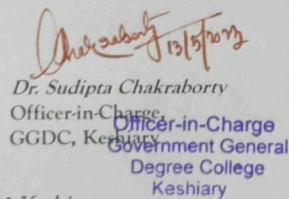 Chakraborty
13/5/2023
Dr. Sudipta Chakraborty
Officer-in-Charge,
GGDC, Keshiary
Officer-in-Charge
Government General
Degree College
Keshiary